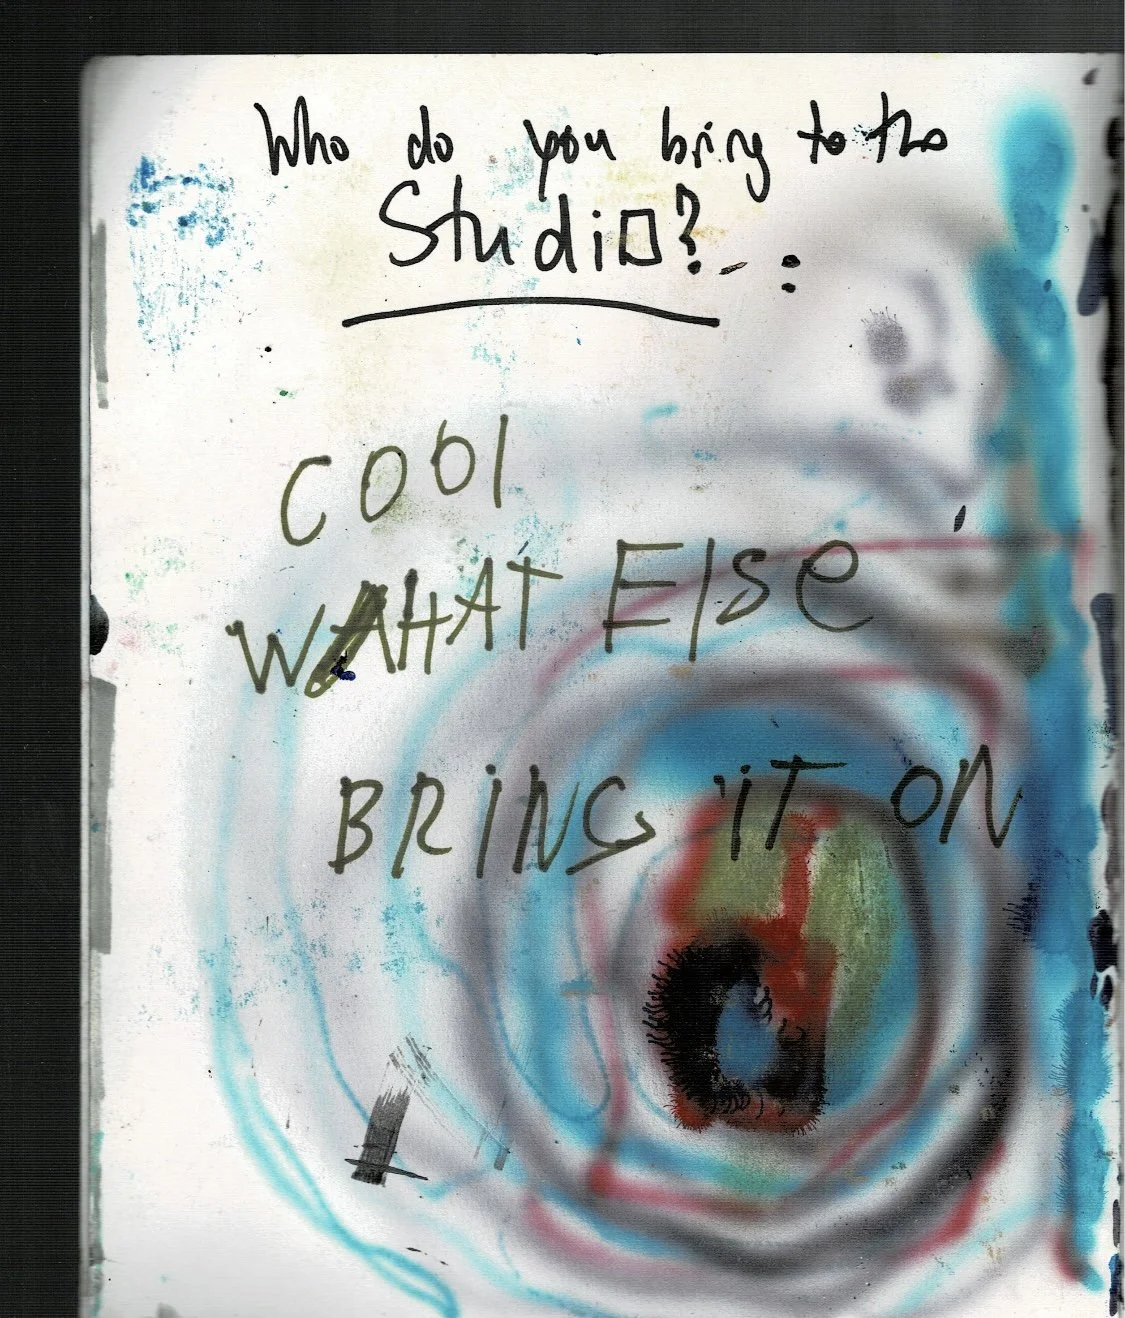 Who do you bring to the
Studio? :
COOl
WHAT ElSe
BRiNG iT ON